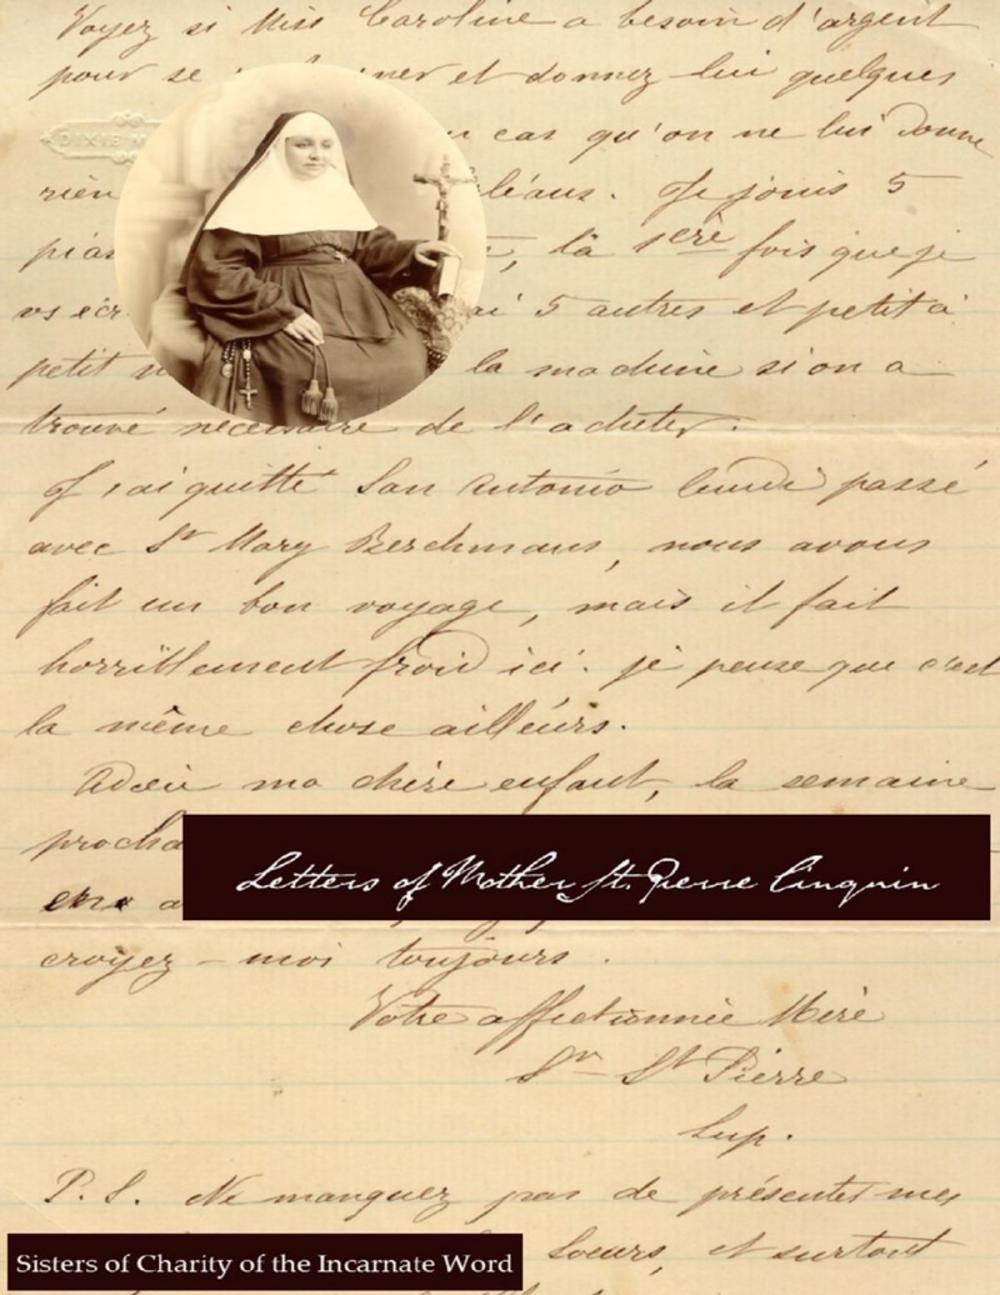 Voyez si Miss Caroline a besoin d'argent
pour se et donnez lui quelques
DIXIE M
cas qu'on ne lui donne
rien léans. Je joins 5
pias , la 1ère fois que je
vs écr ai 5 autres et petit à
petit la machine si on a
trouvé nécessaire de l'acheter.
J'ai quitté San Antonio lundi passé
avec Sr Mary Berchmans, nous avons
fait un bon voyage, mais il fait
horriblement froid ici. je pense que c'est
la même chose ailleurs.
Adieu ma chère enfant, la semaine
procha
Letters of Mother St. Pierre Cinquin
croyez-moi toujours.
Votre affectionnée Mère
Sr St Pierre
Sup.
P.S. Ne manquez pas de présenter mes
soeurs, et surtout
Sisters of Charity of the Incarnate Word